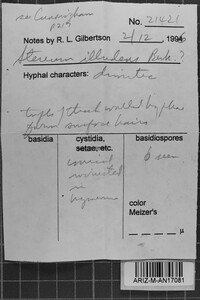 see Cunningham
p 219
No. 21421
Notes by R. L. Gilbertson 2/12 1996
Stereum illudens Berk.?
Hyphal characters: dimitic
tufts of thick walled hyphae
form surface hairs
basidia
cystidia,
setae, etc.
basidiospores
conical
encrusted
in
hymenium
0 seen
color
Melzer's
μ
ARIZ-M-AN17081